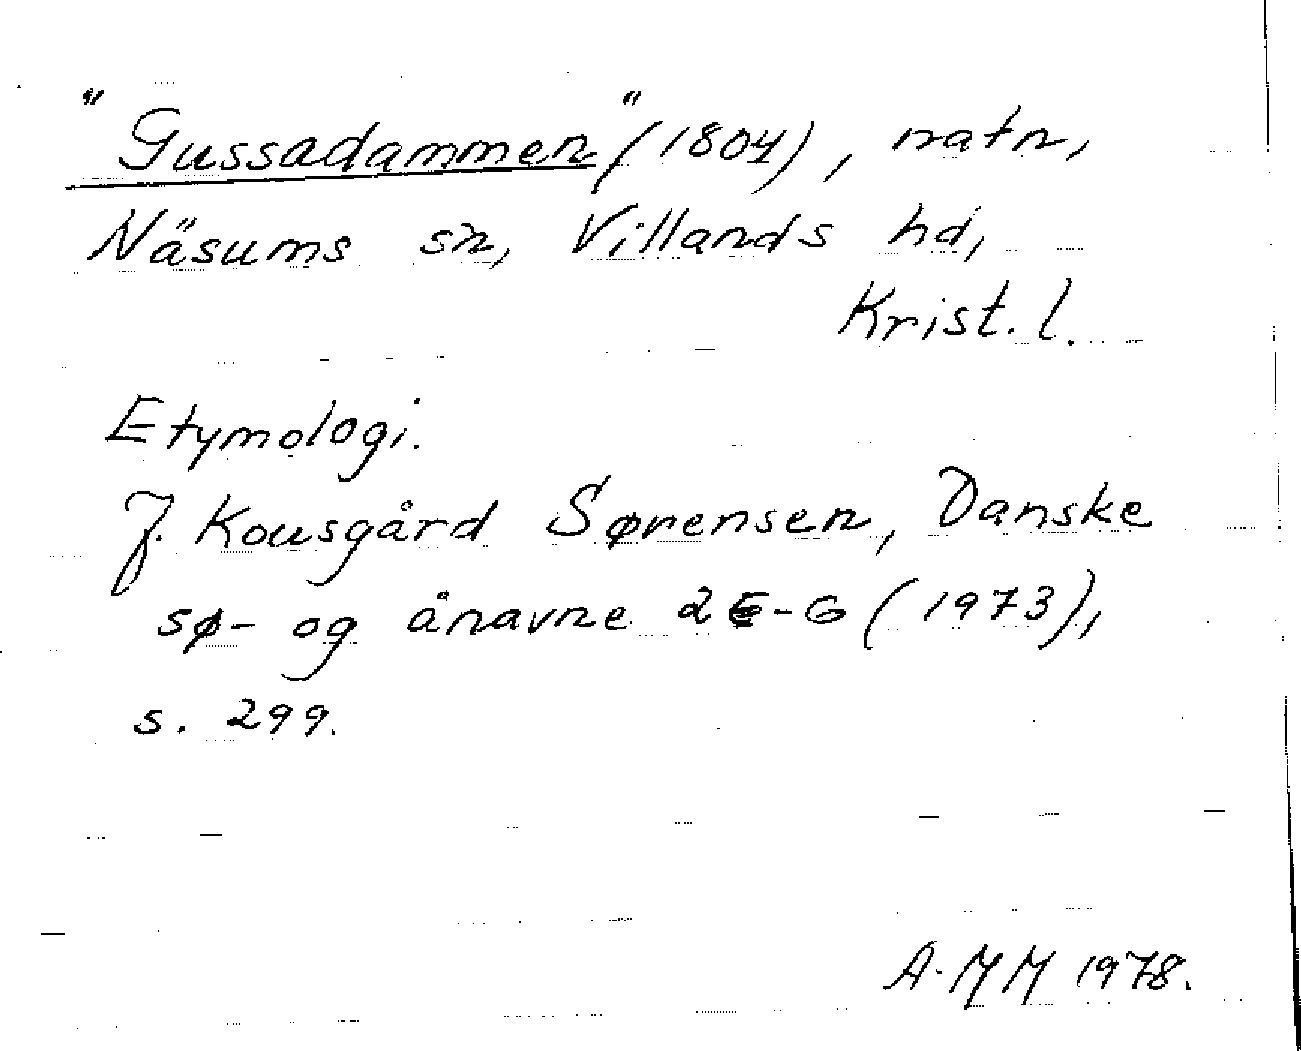 "Gussadammen" (1804), natn,
Näsums sn, Villands hd,
Krist. l.
Etymologi.
J. Kousgård Sørensen, Danske
sø- og ånavne 2 E-G (1973),
s. 299.
A-MM 1978.